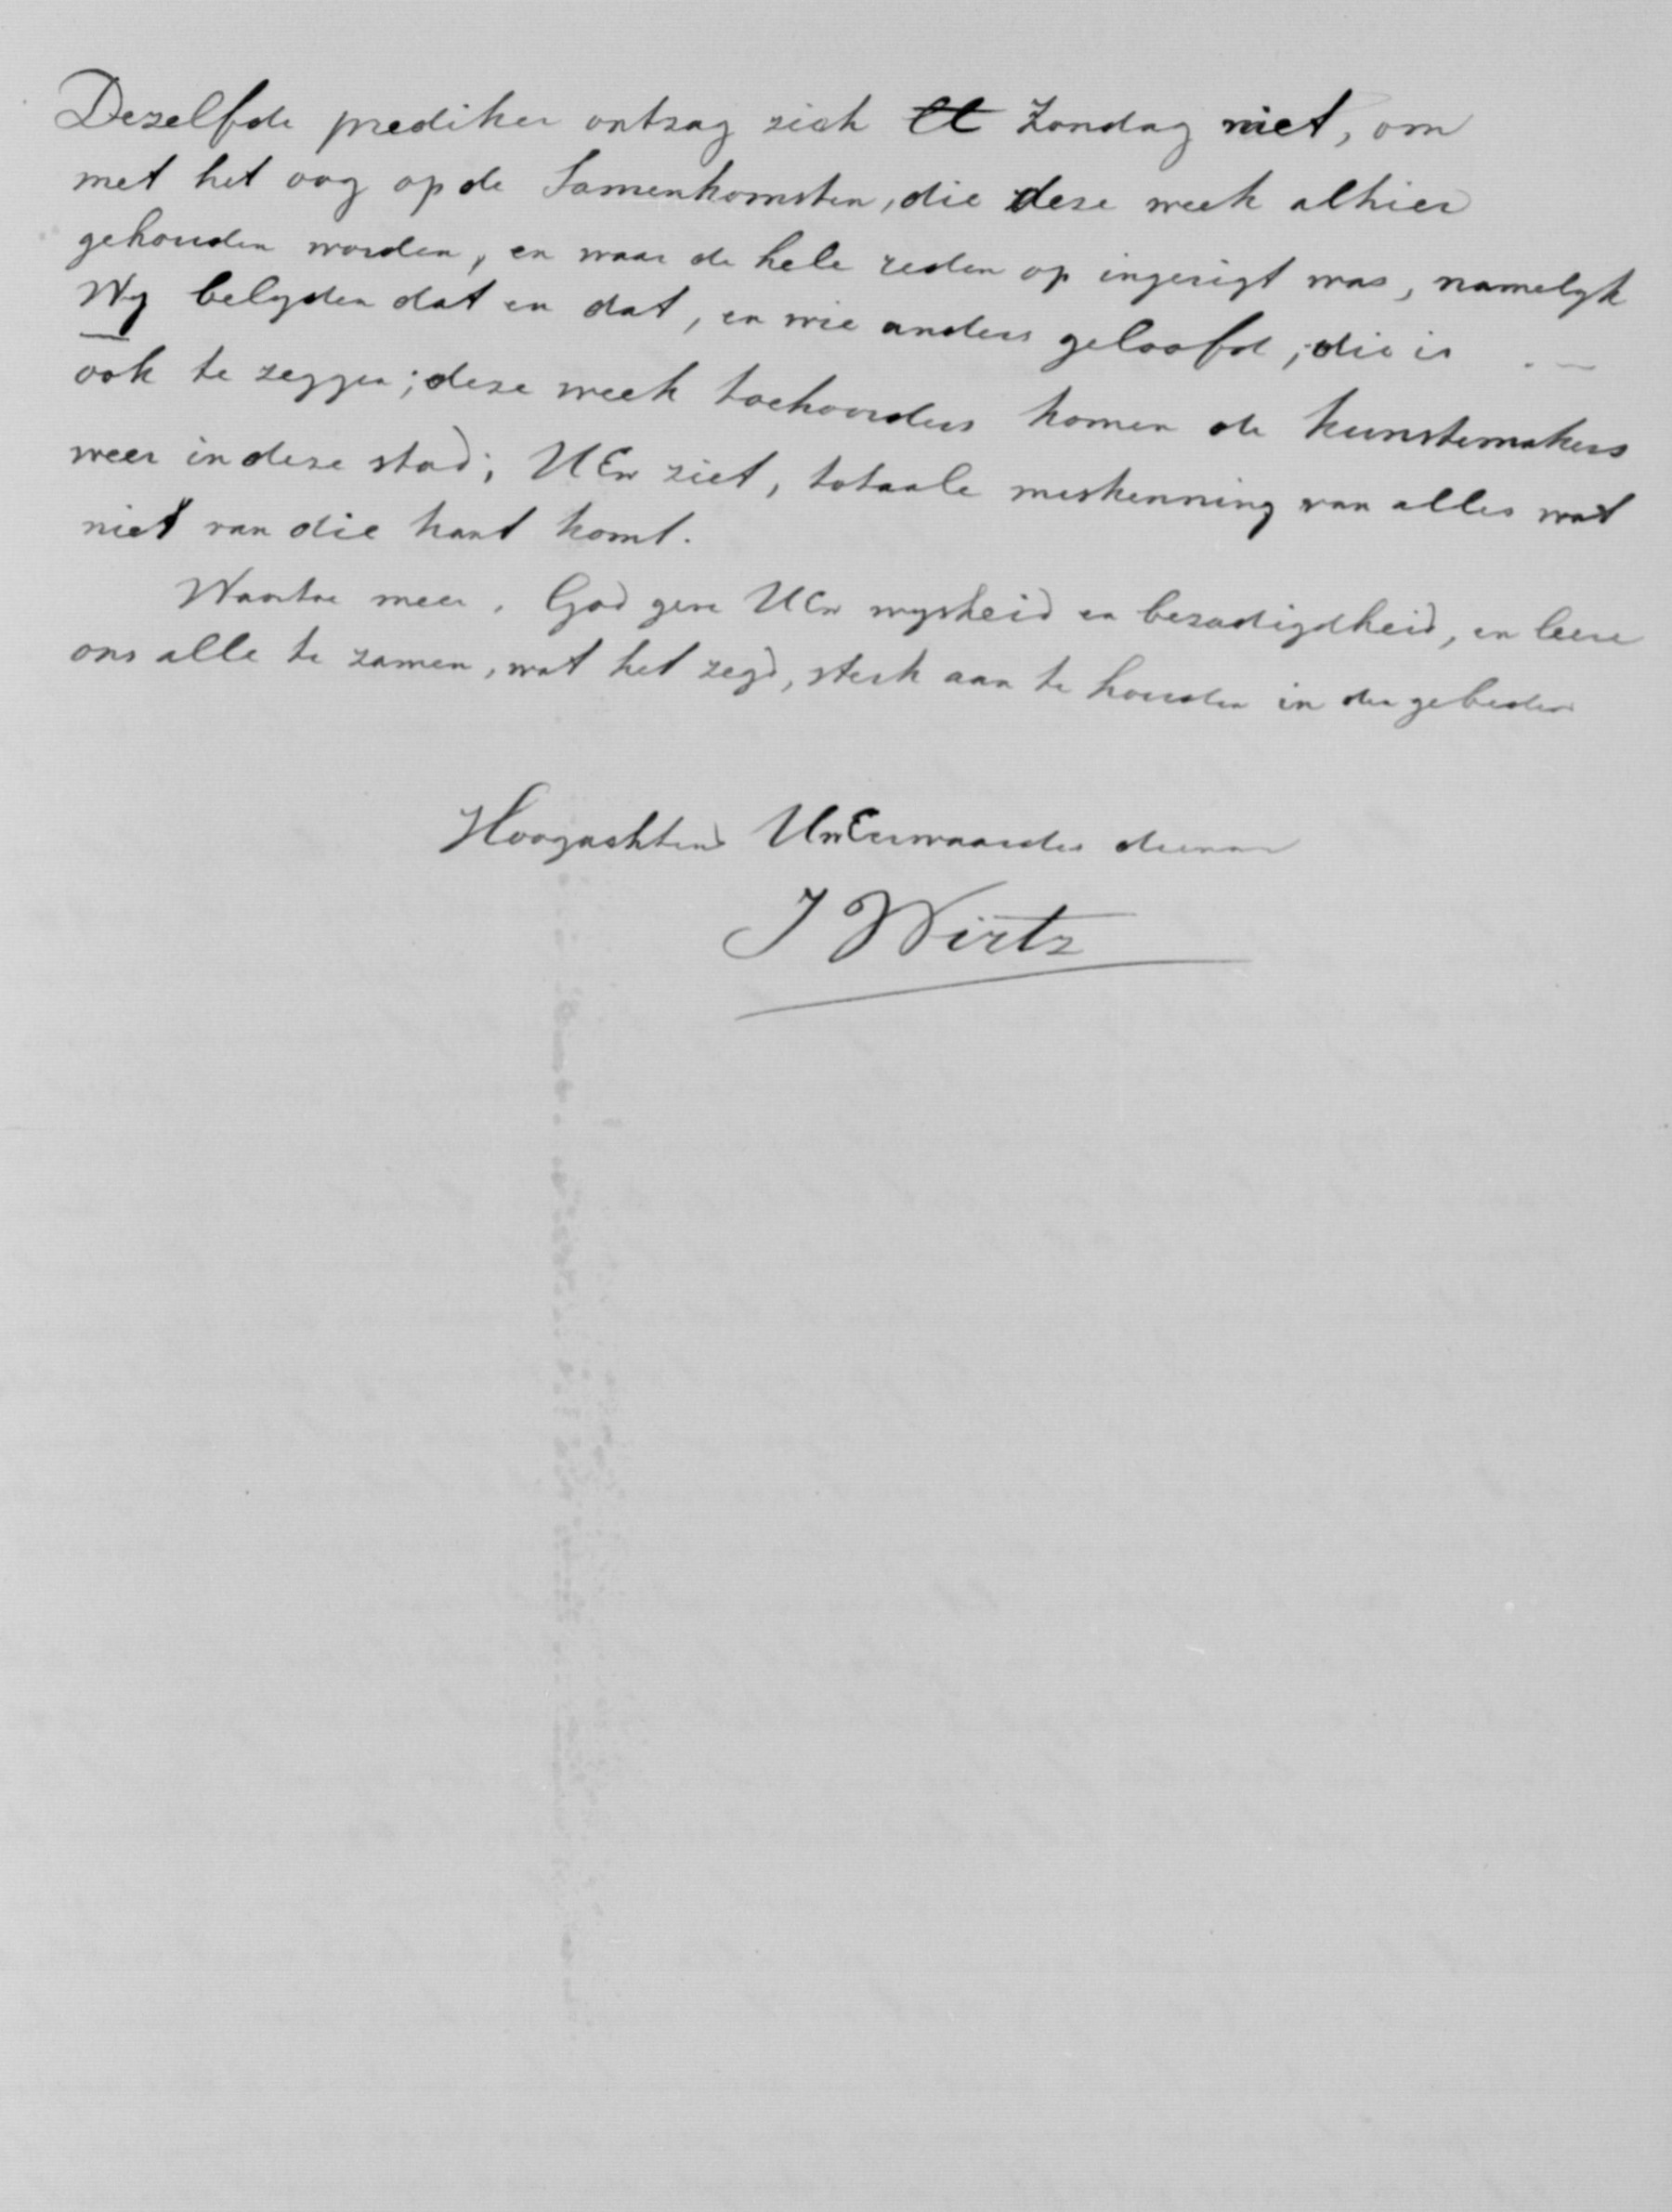 Dezelfde prediker ontzag zich Zondag niet, om
met het oog op de Samenkomsten, die deze week alhier
gehouden worden, en waar de hele reden op ingerigt was, namelyk
Wy belyden dat en dat, en wie anders geloofd, die is . —
ook te zeggen; deze week toehoorders komen de kunstemakers
weer in deze stad; UEw ziet, totaale miskenning van alles wat
niet van die kant komt.
Waartoe meer. God geve UEw wysheid en bezadigdheid, en leere
ons alle te zamen, wat het zegd, sterk aan te houden in den gebeden
Hoogachtend UwEerwaardes dienaar
J Wirtz